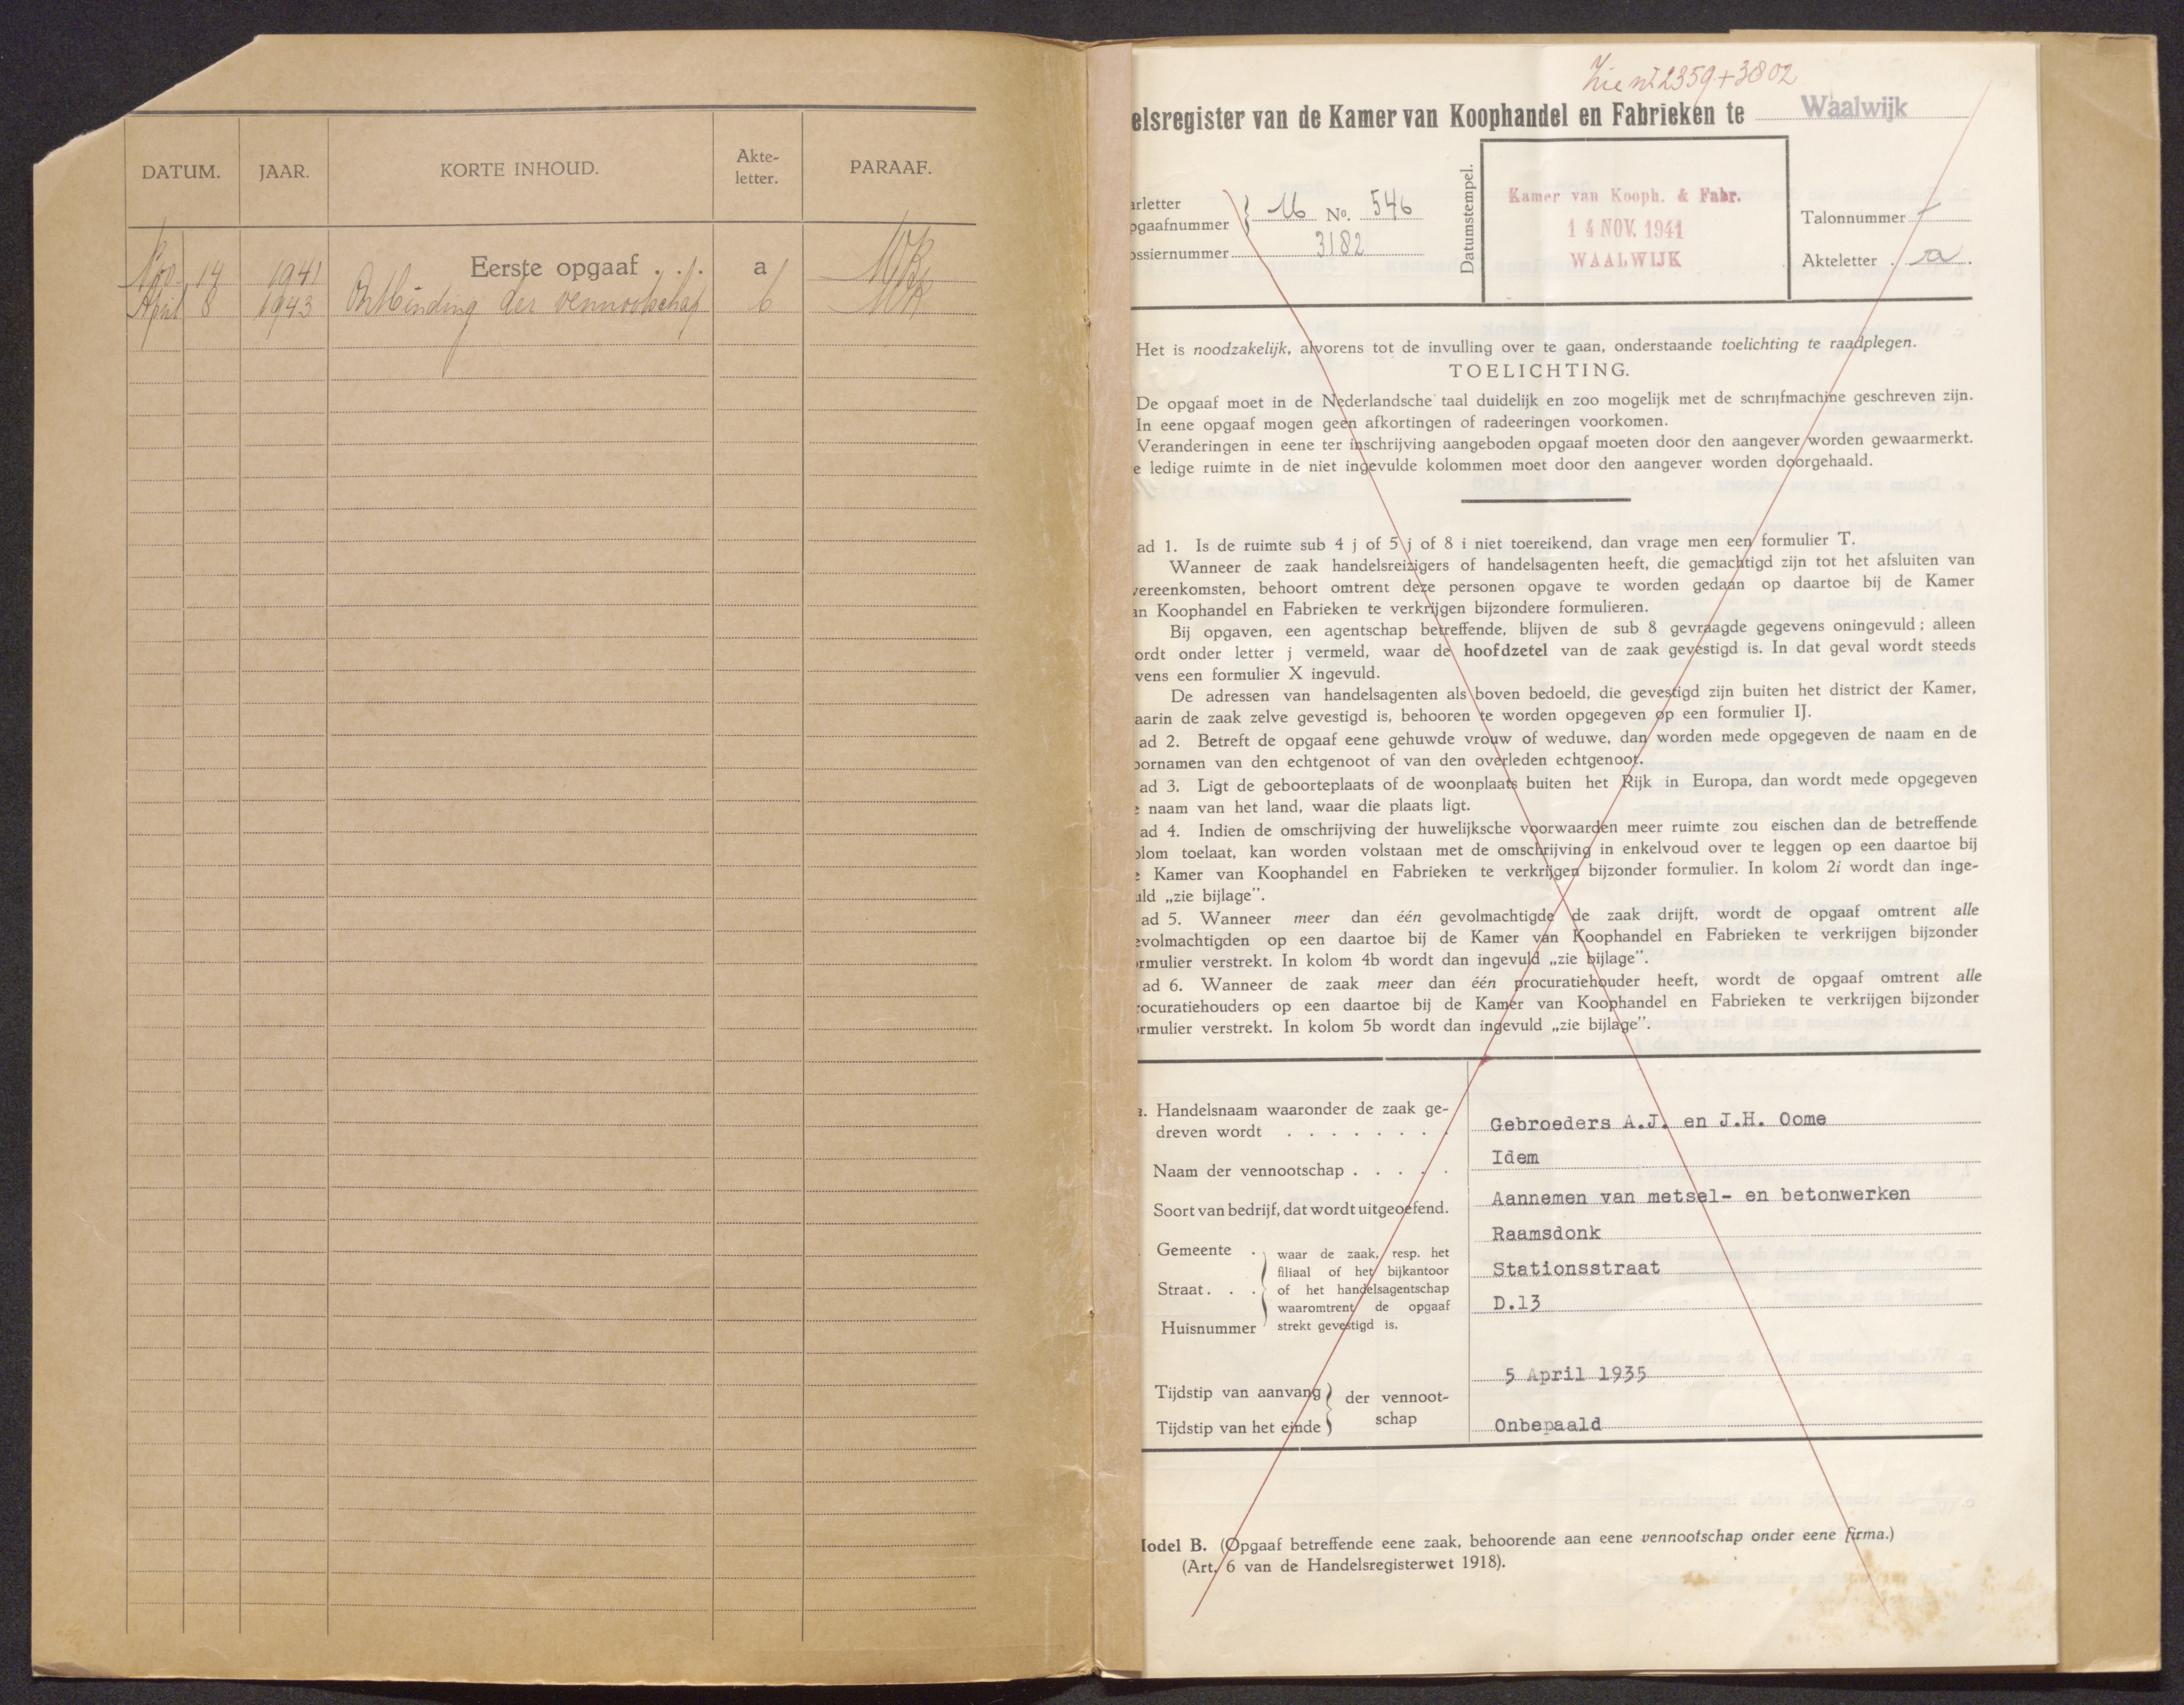 DATUM. JAAR. KORTE INHOUD. Akte-letter. PARAAF.
Nov. 14 1941 Eerste opgaaf . . . a WK
April 8 1943 Ontbinding der vennootschap b WK
Zie nr 2359 + 3802
elsregister van de Kamer van Koophandel en Fabrieken te Waalwijk
arletter
pgaafnummer
No. 546
ossiernummer 3182
Datumstempel.
Kamer van Kooph. & Fabr.
14 NOV. 1941
WAALWIJK
Talonnummer
Akteletter . a .
Het is noodzakelijk, alvorens tot de invulling over te gaan, onderstaande toelichting te raadplegen.
TOELICHTING.
De opgaaf moet in de Nederlandsche taal duidelijk en zoo mogelijk met de schrijfmachine geschreven zijn.
In eene opgaaf mogen geen afkortingen of radeeringen voorkomen.
Veranderingen in eene ter inschrijving aangeboden opgaaf moeten door den aangever worden gewaarmerkt.
e ledige ruimte in de niet ingevulde kolommen moet door den aangever worden doorgehaald.
ad 1. Is de ruimte sub 4 j of 5 j of 8 i niet toereikend, dan vrage men een formulier T.
Wanneer de zaak handelsreizigers of handelsagenten heeft, die gemachtigd zijn tot het afsluiten van
vereenkomsten, behoort omtrent deze personen opgave te worden gedaan op daartoe bij de Kamer
an Koophandel en Fabrieken te verkrijgen bijzondere formulieren.
Bij opgaven, een agentschap betreffende, blijven de sub 8 gevraagde gegevens oningevuld; alleen
ordt onder letter j vermeld, waar de hoofdzetel van de zaak gevestigd is. In dat geval wordt steeds
vens een formulier X ingevuld.
De adressen van handelsagenten als boven bedoeld, die gevestigd zijn buiten het district der Kamer,
aarin de zaak zelve gevestigd is, behooren te worden opgegeven op een formulier IJ.
ad 2. Betreft de opgaaf eene gehuwde vrouw of weduwe, dan worden mede opgegeven de naam en de
oornamen van den echtgenoot of van den overleden echtgenoot.
ad 3. Ligt de geboorteplaats of de woonplaats buiten het Rijk in Europa, dan wordt mede opgegeven
e naam van het land, waar die plaats ligt.
ad 4. Indien de omschrijving der huwelijksche voorwaarden meer ruimte zou eischen dan de betreffende
olom toelaat, kan worden volstaan met de omschrijving in enkelvoud over te leggen op een daartoe bij
e Kamer van Koophandel en Fabrieken te verkrijgen bijzonder formulier. In kolom 2i wordt dan inge-
uld „zie bijlage".
ad 5. Wanneer meer dan één gevolmachtigde de zaak drijft, wordt de opgaaf omtrent alle
evolmachtigden op een daartoe bij de Kamer van Koophandel en Fabrieken te verkrijgen bijzonder
ormulier verstrekt. In kolom 4b wordt dan ingevuld „zie bijlage".
ad 6. Wanneer de zaak meer dan één procuratiehouder heeft, wordt de opgaaf omtrent alle
rocuratiehouders op een daartoe bij de Kamer van Koophandel en Fabrieken te verkrijgen bijzonder
ormulier verstrekt. In kolom 5b wordt dan ingevuld „zie bijlage".
a. Handelsnaam waaronder de zaak ge-
dreven wordt . . . . . . . Gebroeders A.J. en J.H. Oome
Naam der vennootschap . . . . . Idem
Soort van bedrijf, dat wordt uitgeoefend. Aannemen van metsel- en betonwerken
Gemeente . Raamsdonk
Straat . . . Stationsstraat
Huisnummer D.13
waar de zaak, resp. het
filiaal of het bijkantoor
of het handelsagentschap
waaromtrent de opgaaf
strekt gevestigd is.
Tijdstip van aanvang 5 April 1935
der vennoot-
schap
Tijdstip van het einde Onbepaald
odel B. (Opgaaf betreffende eene zaak, behoorende aan eene vennootschap onder eene firma.)
(Art. 6 van de Handelsregisterwet 1918).